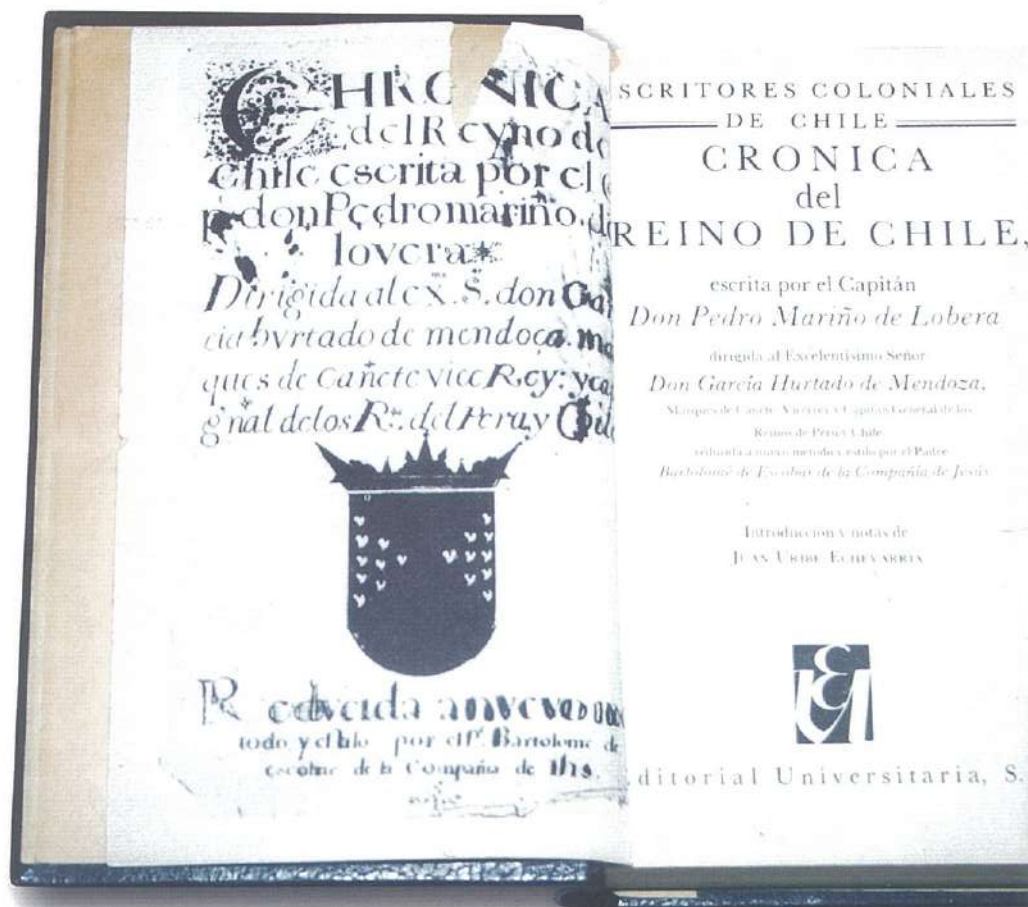 CHRONICA
del Reyno de
Chile escrita por el
p don Pedro mariño. d
lovera
Dirigida al ex.mo S.or don Gar
cia hvrtado de mendoça. ma
ques de Cañete vice Rey: y ca
gnal de los R.nos del Peru, y Chile
Redvcida a nvevo
todo y estilo por el P.e Bartolome de
escobar de la Compañia de IHS.
SCRITORES COLONIALES
DE CHILE
CRONICA
del
REINO DE CHILE,
escrita por el Capitán
Don Pedro Mariño de Lobera
dirigida al Excelentísimo Señor
Don García Hurtado de Mendoza,
Marqués de Cañete, Virrey y Capitán General de los
Reinos de Perú y Chile
reducida a nuevo método y estilo por el Padre
Bartolomé de Escobar de la Compañía de Jesús
Introducción y notas de
JUAN URIBE ECHEVARRIA
ditorial Universitaria, S.